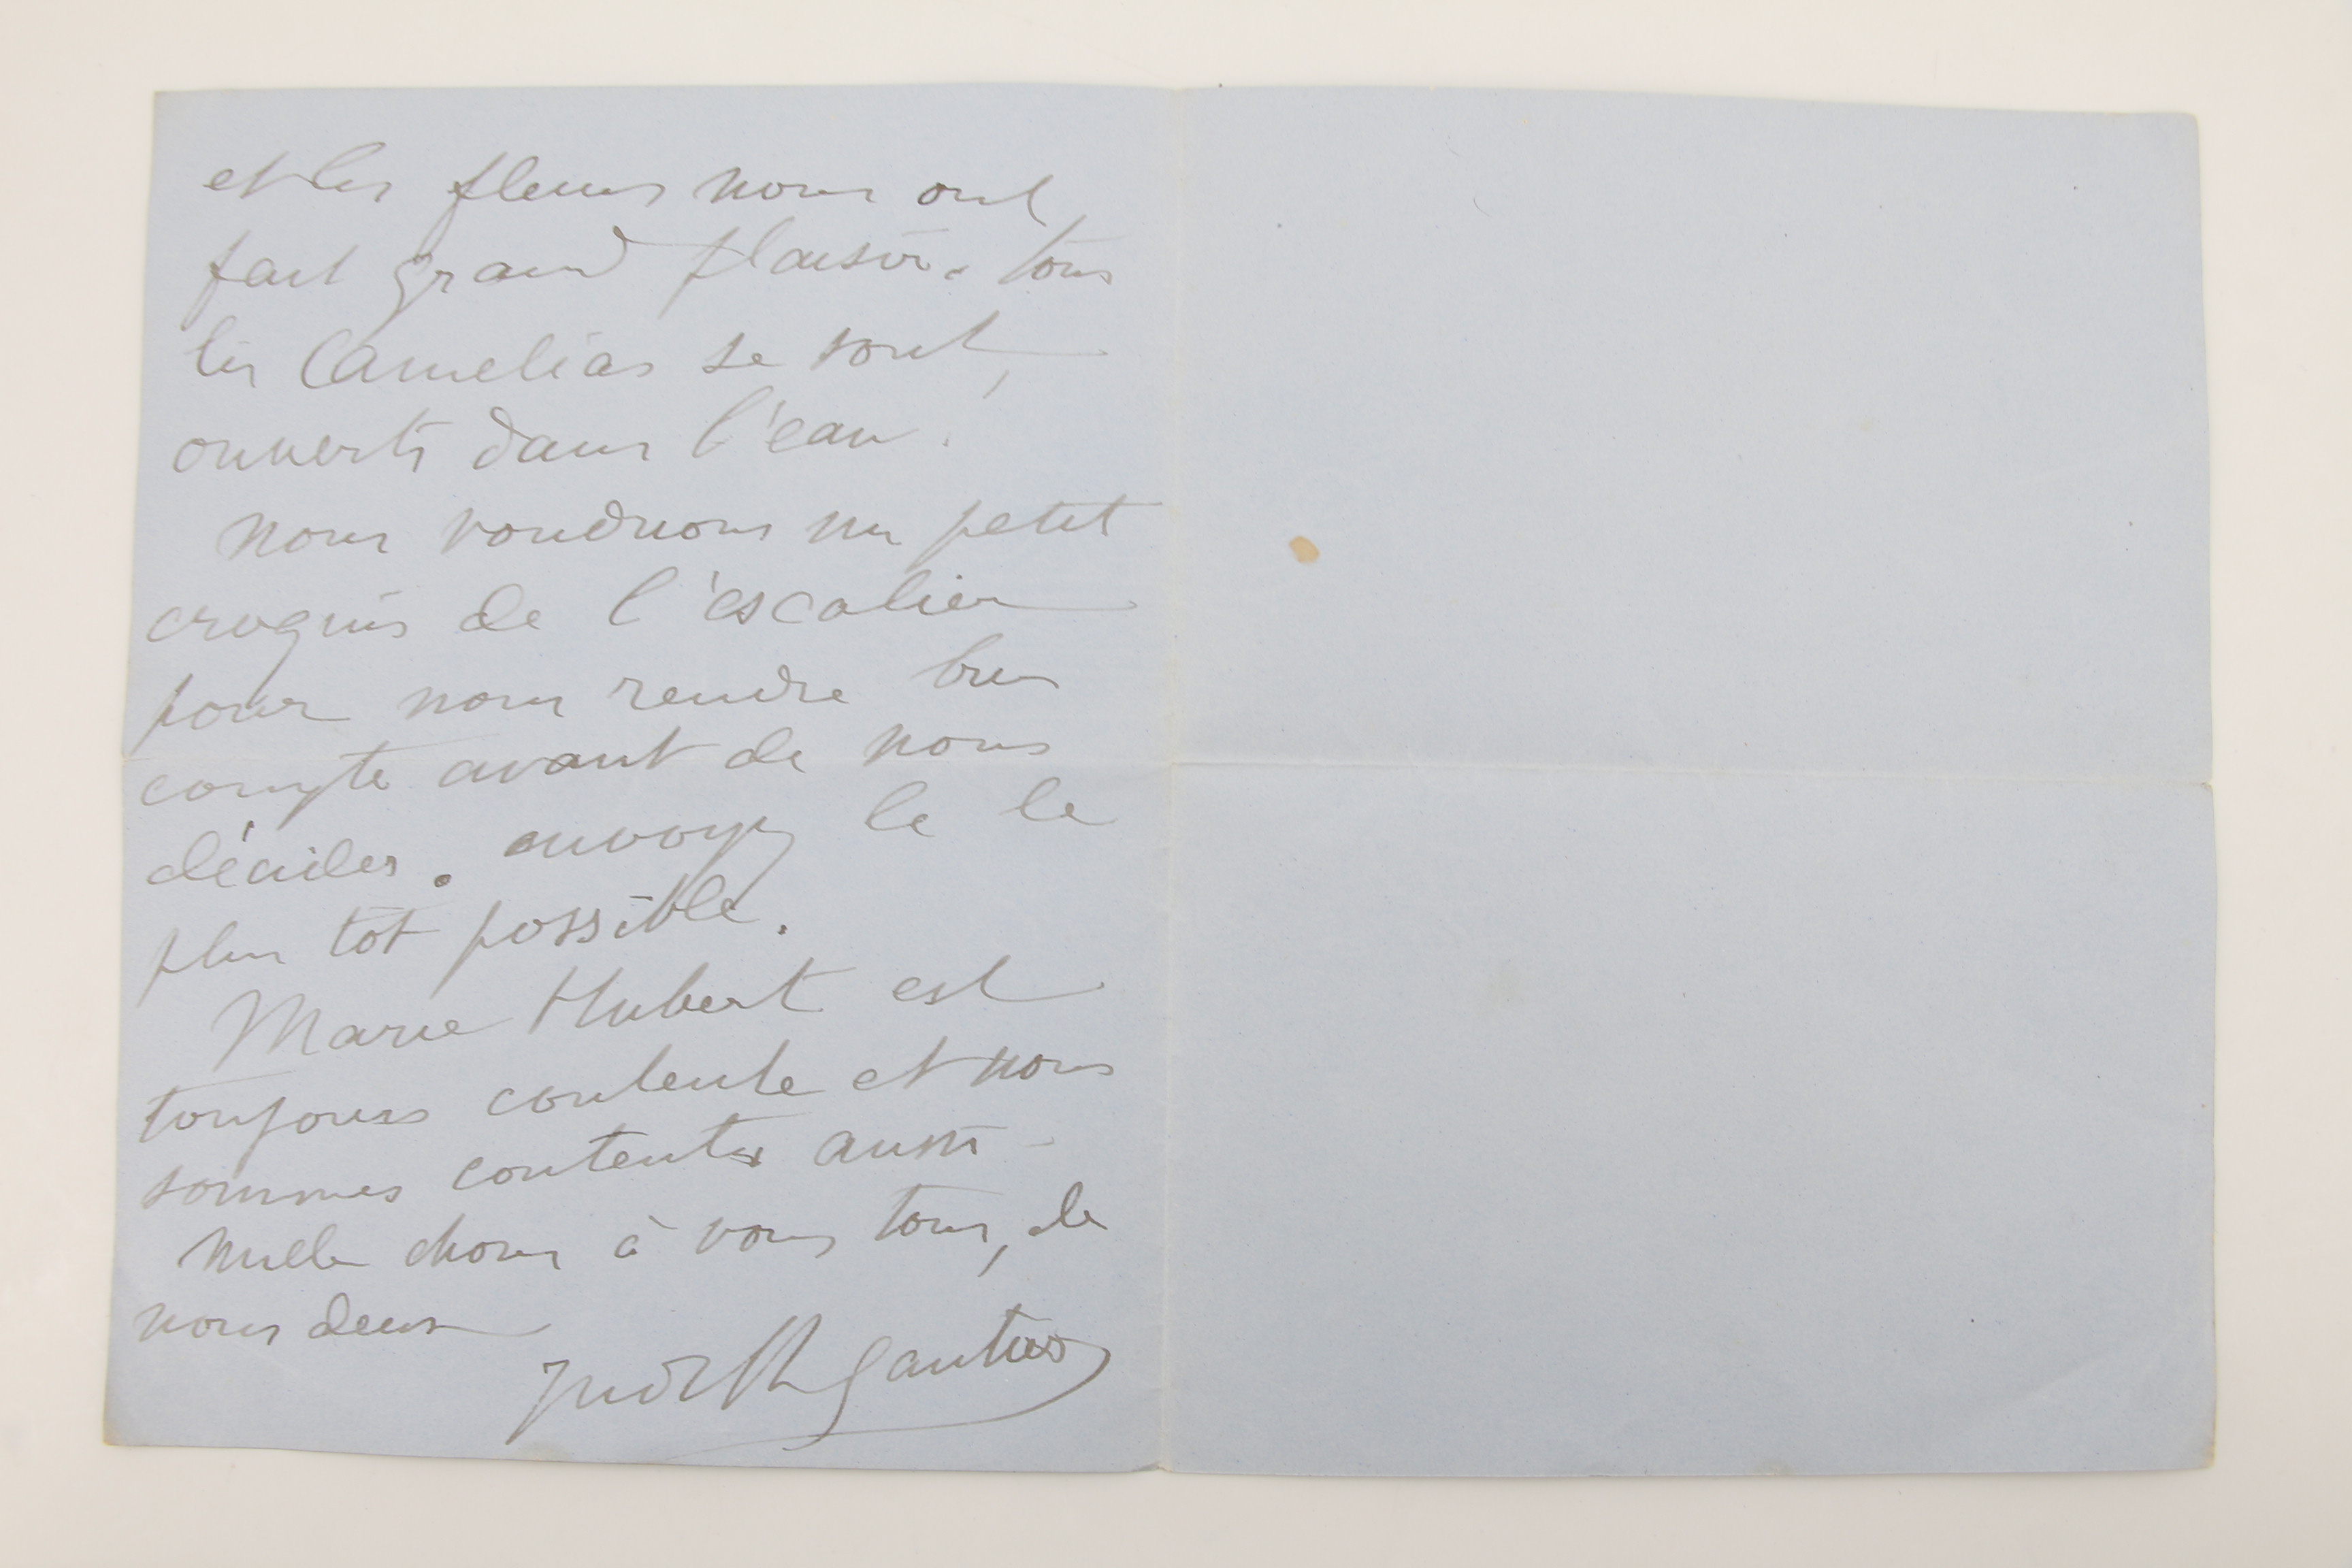 et les fleurs nous ont
fait grand plaisir. tous
les Camelias se sont
ouverts dans l'eau.
nous voudrions un petit
croquis de l'escalier
pour nous rendre bien
compte avant de nous
décider. envoyez le le
plus tôt possible.
Marie Hubert est
toujours contente et nous
sommes contents aussi -
Mille choses à vous tous, de
nous deux
Judith Gautier